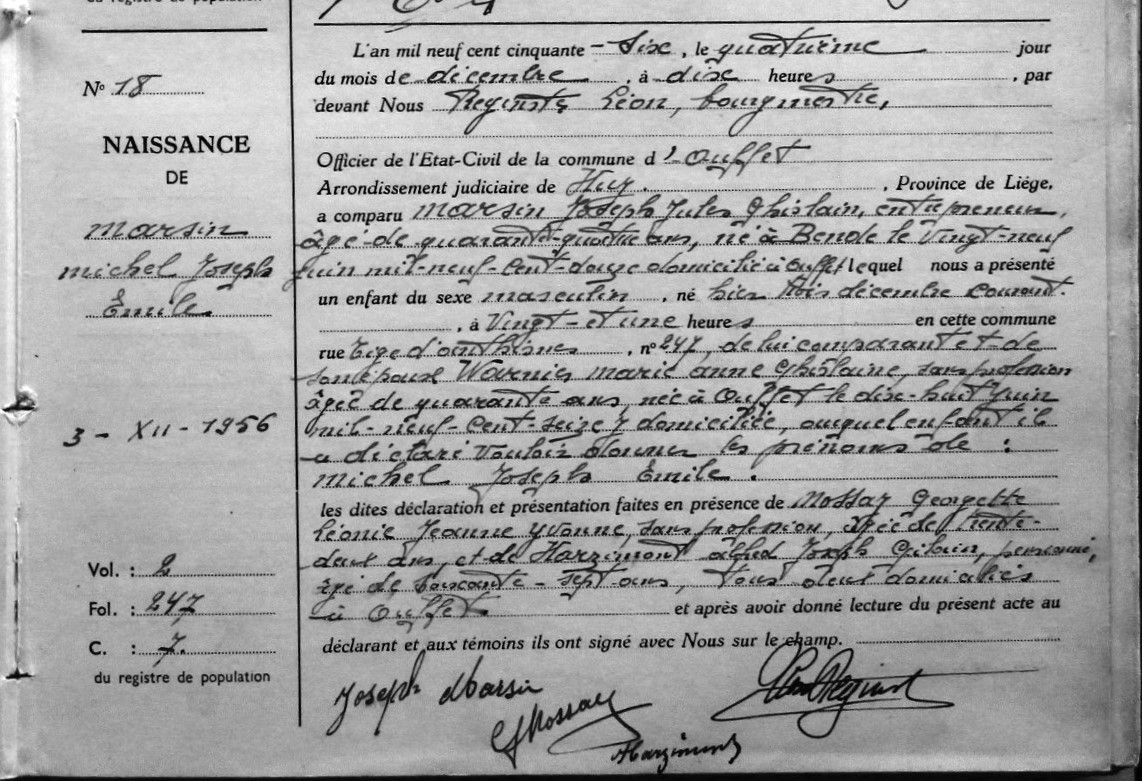 du registre de population
L'an mil neuf cent cinquante - Six, le quatrième jour
du mois de décembre, à dix heures, par
devant Nous Reginster Léon, bourgmestre,
Officier de l'Etat-Civil de la commune d'Ouffet
Arrondissement judiciaire de Huy. , Province de Liége,
a comparu Marsin Joseph Jules Ghislain, entrepreneur,
âgé de quarante-quatre ans, né à Bende le Vingt-neuf
juin mil-neuf-cent-douze domicilié à Ouffet lequel nous a présenté
un enfant du sexe masculin, né hier trois décembre courant.
, à Vingt-et une heures en cette commune
rue Tige d'anthisnes, n° 247, de lui comparant et de
son épouse Warnier Marie Anne Ghislaine, sans profession
âgée de quarante ans, née à Ouffet le dix-huit juin
mil-neuf-cent-seize y domiciliée, auquel enfant il
a déclaré vouloir donner les prénoms de :
Michel Joseph Émile.
les dites déclaration et présentation faites en présence de Mossay Georgette
Léonie Jeanne Yvonne, sans profession, âgée de trente-
deux ans, et de Harzimont Alfred Joseph Gilain, pensionné,
âgé de soixante-sept ans, tous deux domiciliés
à Ouffet et après avoir donné lecture du présent acte au
déclarant et aux témoins ils ont signé avec Nous sur le champ.
Joseph Marsin
G Mossay
Harzimont
Léon Reginster
N° 18
NAISSANCE
DE
Marsin
Michel Joseph
Émile
3 - XII - 1956
Vol. : 2
Fol. : 247
C. : 7.
du registre de population